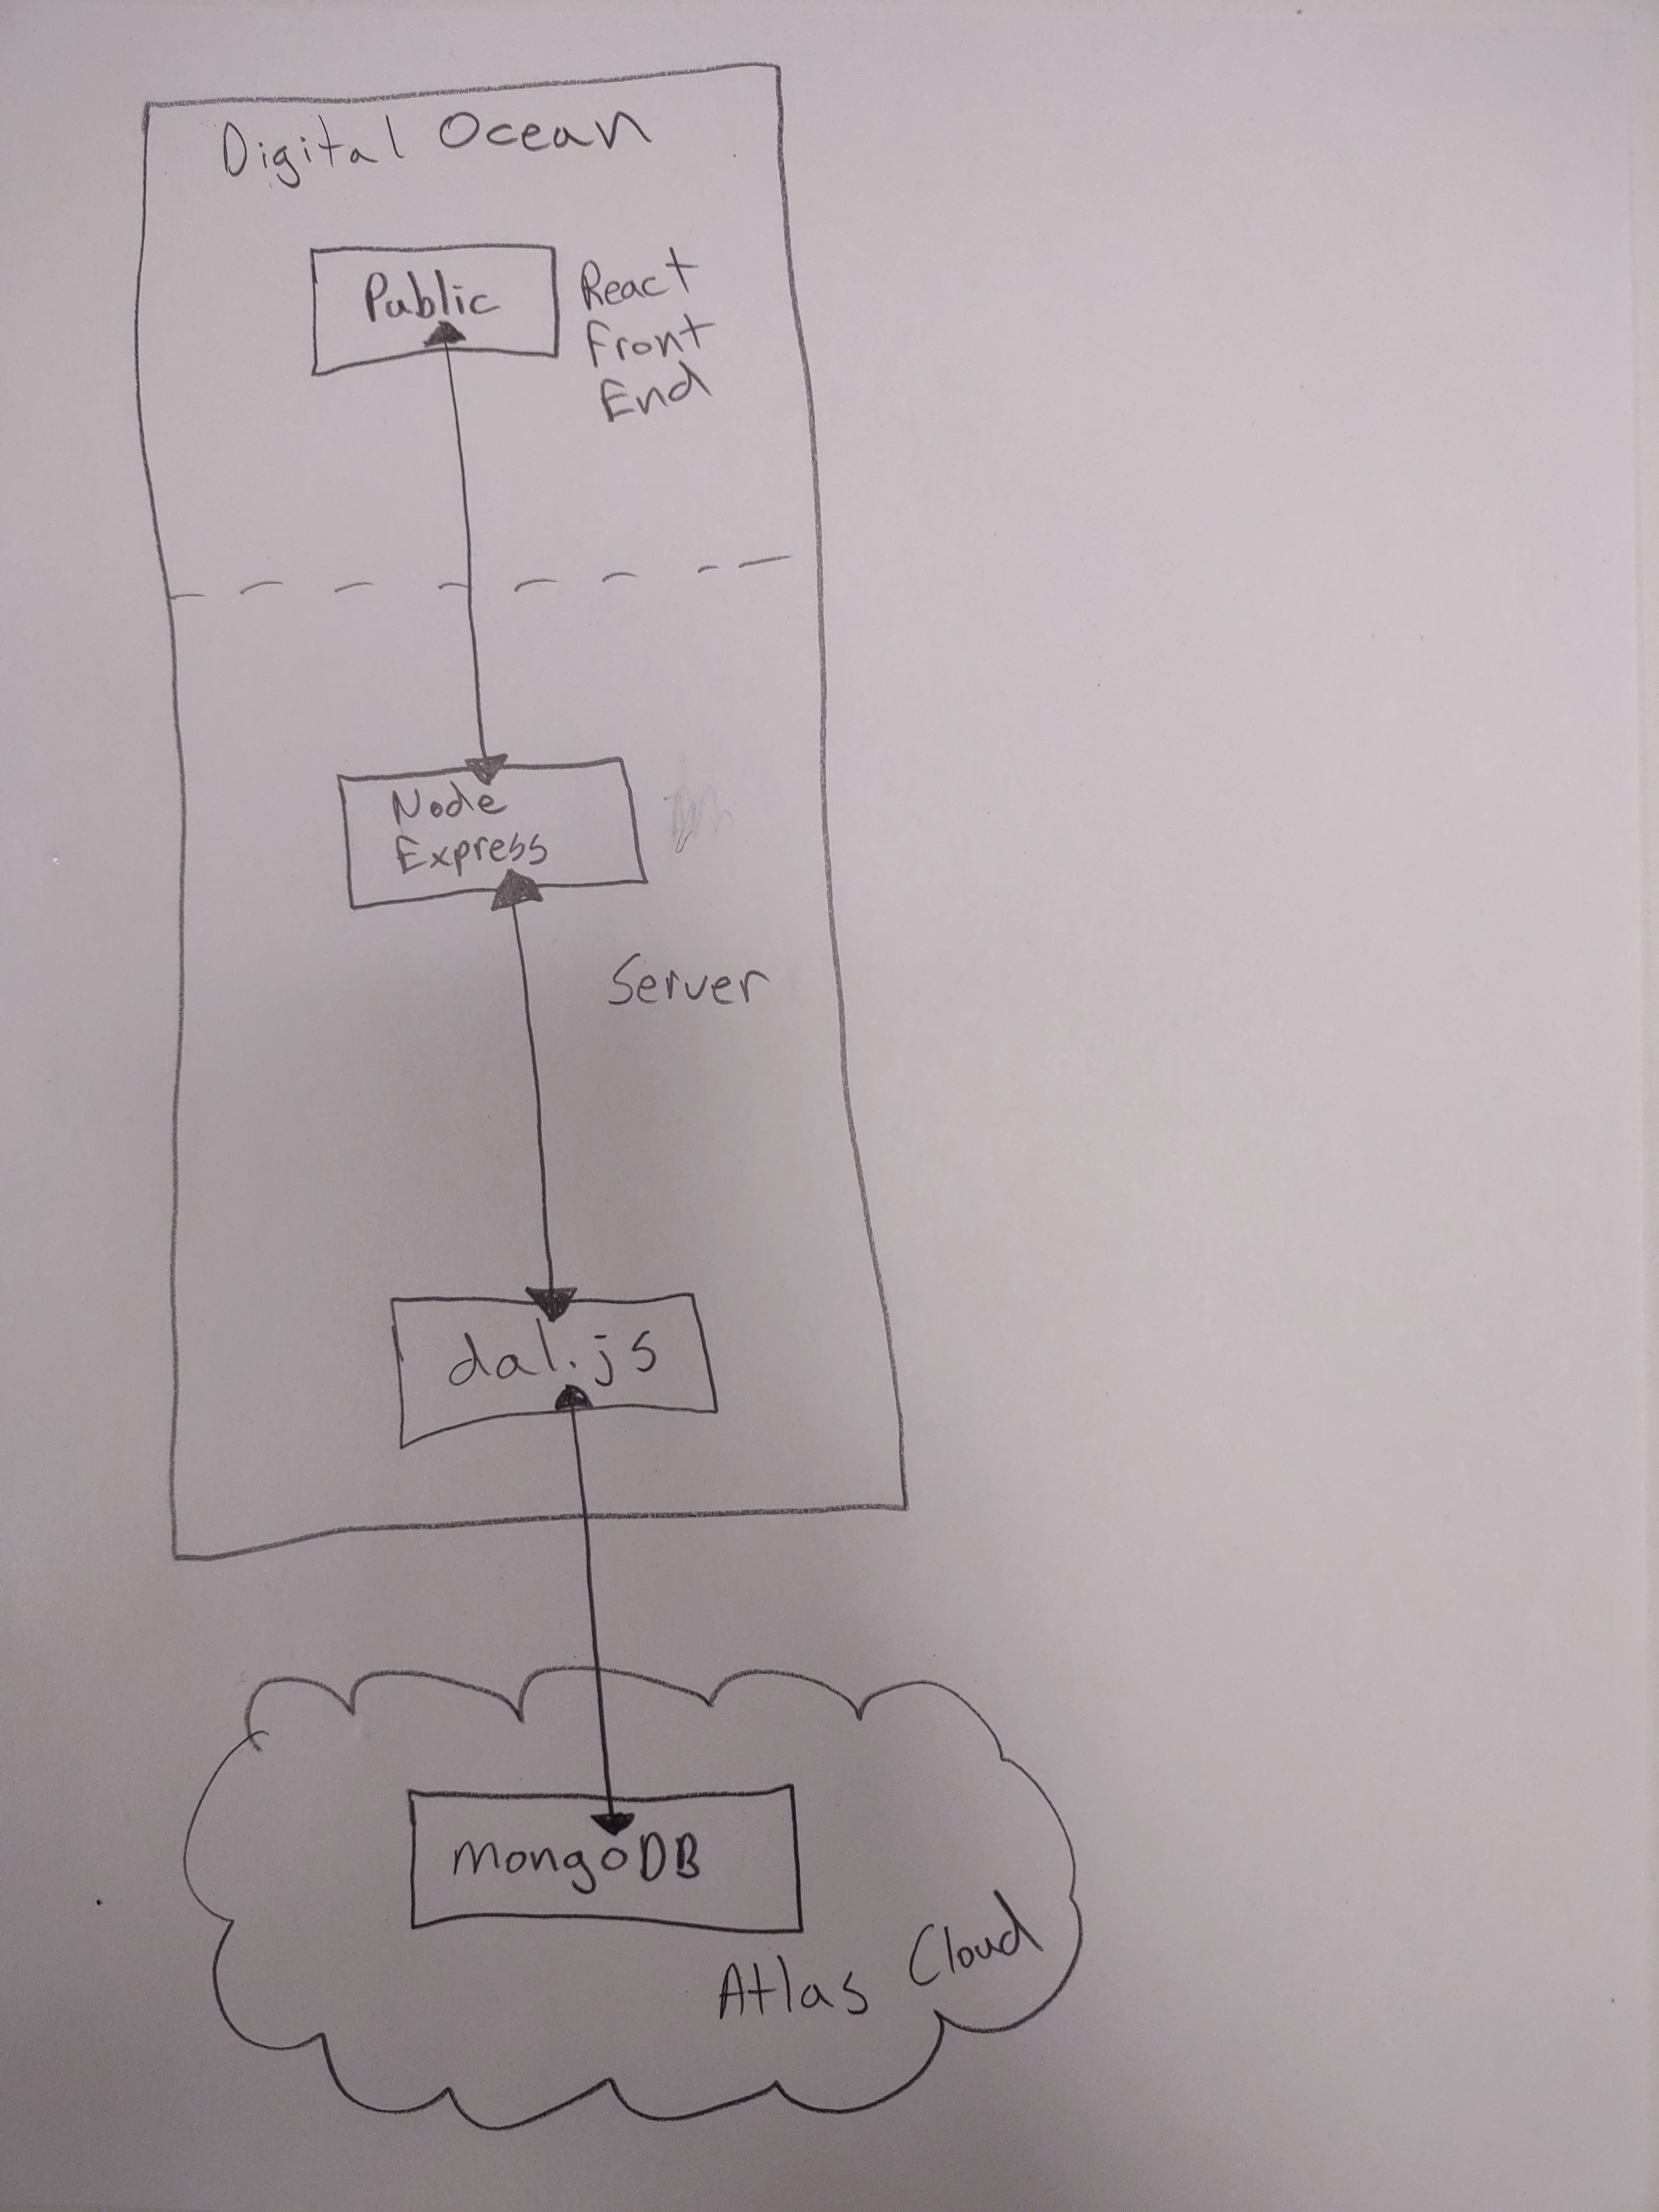 Digital Ocean
Public
React
Front
End
Node
Express
Server
dal.js
MongoDB
Atlas Cloud